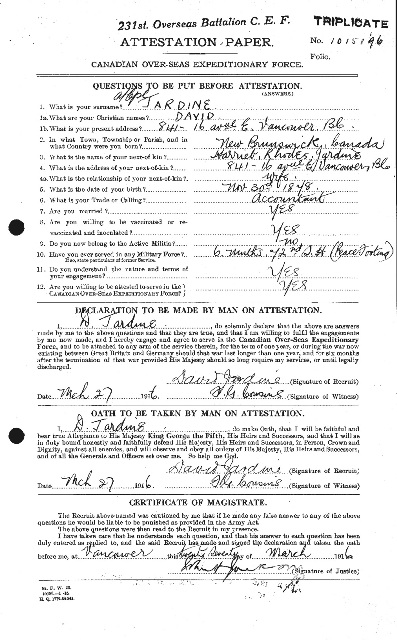 231st. Overseas Battalion C. E. F.
TRIPLICATE
ATTESTATION PAPER.
No. 1015196
Folio.
CANADIAN OVER-SEAS EXPEDITIONARY FORCE.
QUESTIONS TO BE PUT BEFORE ATTESTATION.
(ANSWERS)
1. What is your surname? JARDINE
1a. What are your Christian names? DAVID
1b. What is your present address? 841- 16 ave E, Vancouver, Bc.
2. In what Town, Township or Parish, and in
what Country were you born? New Brunswick, Canada
3. What is the name of your next-of-kin? Harriet, Rhodes, Jardine
4. What is the address of your next-of-kin? 841- 16 ave E, Vancouver, Bc
4a. What is the relationship of your next-of-kin? Wife
5. What is the date of your birth? Nov 30th 1878.
6. What is your Trade or Calling? Accountant
7. Are you married? YES
8. Are you willing to be vaccinated or re-
vaccinated and inoculated? YES
9. Do you now belong to the Active Militia? no
10. Have you ever served in any Military Force?
If so, state particulars of former Service. 6 months 72nd S.H.
11. Do you understand the nature and terms of
your engagement? YES
12. Are you willing to be attested to serve in the
CANADIAN OVER-SEAS EXPEDITIONARY FORCE? YES
DECLARATION TO BE MADE BY MAN ON ATTESTATION.
I, D. Jardine, do solemnly declare that the above are answers
made by me to the above questions and that they are true, and that I am willing to fulfil the engagements
by me now made, and I hereby engage and agree to serve in the Canadian Over-Seas Expeditionary
Force, and to be attached to any arm of the service therein, for the term of one year, or during the war now
existing between Great Britain and Germany should that war last longer than one year, and for six months
after the termination of that war provided His Majesty should so long require my services, or until legally
discharged.
David Jardine (Signature of Recruit)
Date Mch 27 1916. Cousins (Signature of Witness)
OATH TO BE TAKEN BY MAN ON ATTESTATION.
I, D. Jardine, do make Oath, that I will be faithful and
bear true Allegiance to His Majesty King George the Fifth, His Heirs and Successors, and that I will as
in duty bound honestly and faithfully defend His Majesty, His Heirs and Successors, in Person, Crown and
Dignity, against all enemies, and will observe and obey all orders of His Majesty, His Heirs and Successors,
and of all the Generals and Officers set over me. So help me God.
David Jardine (Signature of Recruit)
Date Mch 27 1916 Cousins (Signature of Witness)
CERTIFICATE OF MAGISTRATE.
The Recruit above-named was cautioned by me that if he made any false answer to any of the above
questions he would be liable to be punished as provided in the Army Act.
The above questions were then read to the Recruit in my presence.
I have taken care that he understands each question, and that his answer to each question has been
duly entered as replied to, and the said Recruit has made and signed the declaration and taken the oath
before me, at Vancouver this day of March 1916
(Signature of Justice)